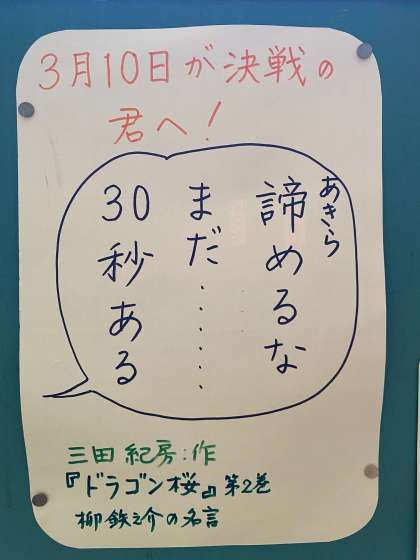 3月10日が決戦の
君へ!
あきら
諦めるな
まだ......
30秒ある
三田紀房:作
『ドラゴン桜』第2巻
柳鉄之介の名言